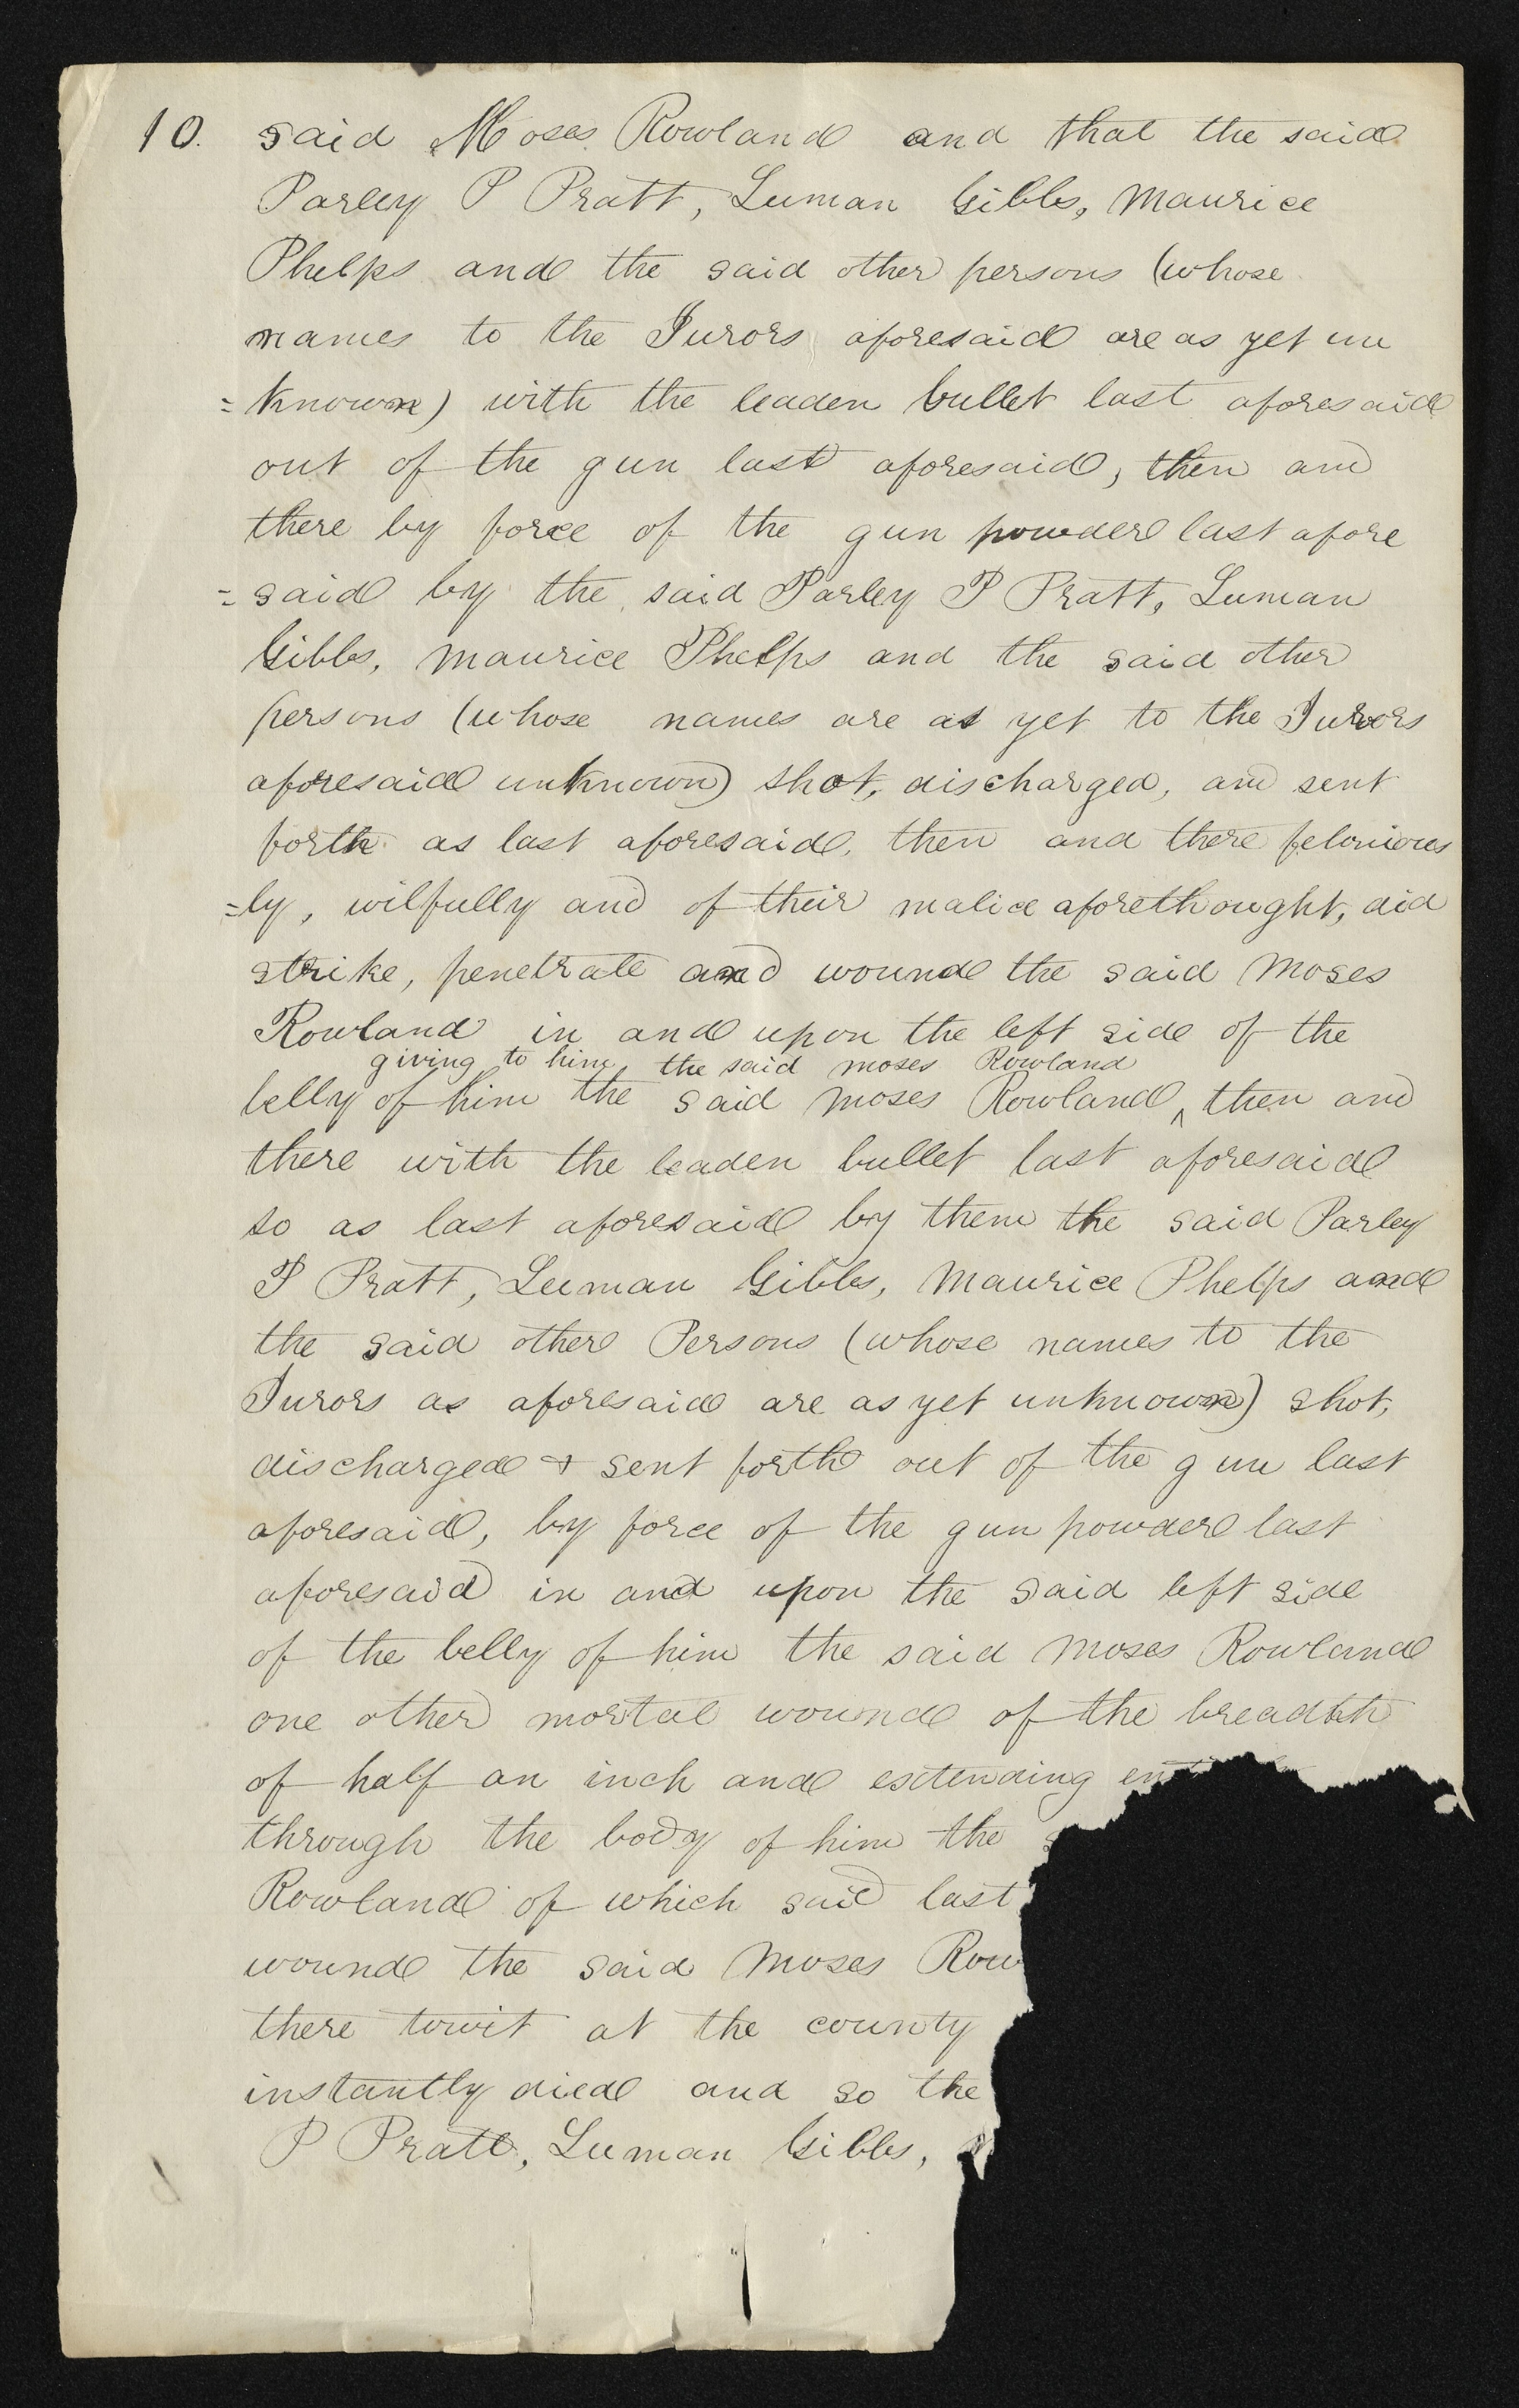 10. said Moses Rowland and that the said
Parley P Pratt, Luman Gibbs, Maurice
Phelps and the said other persons (whose
names to the Jurors aforesaid are as yet un
=known) with the leaden bullet last aforesaid
out of the gun last aforesaid, then and
there by force of the gun powder last afore
=said by the said Parley P Pratt, Luman
Gibbs, Maurice Phelps and the said other
persons (whose names are as yet to the Jurors
aforesaid unknown) shot, discharged, and sent
forth as last aforesaid, then and there felonious
=ly, wilfully and of their malice aforethought, did
strike, penetrate and wound the said Moses
Rowland in and upon the left side of the
giving to him the said moses Rowland
belly of him the said Moses Rowland ^ then and
there with the leaden bullet last aforesaid
so as last aforesaid by them the said Parley
P Pratt, Luman Gibbs, Maurice Phelps and
the said other Persons (whose names to the
Jurors as aforesaid are as yet unknown) shot,
discharged & sent forth out of the gun last
aforesaid, by force of the gun powder last
aforesaid in and upon the said left side
of the belly of him the said Moses Rowland
one other mortal wound of the breadth
of half an inch and extending
through the body of him the
Rowland of which said last
wound the said Moses Row
there towit at the county
instantly died and so the
P Pratt, Luman Gibbs,